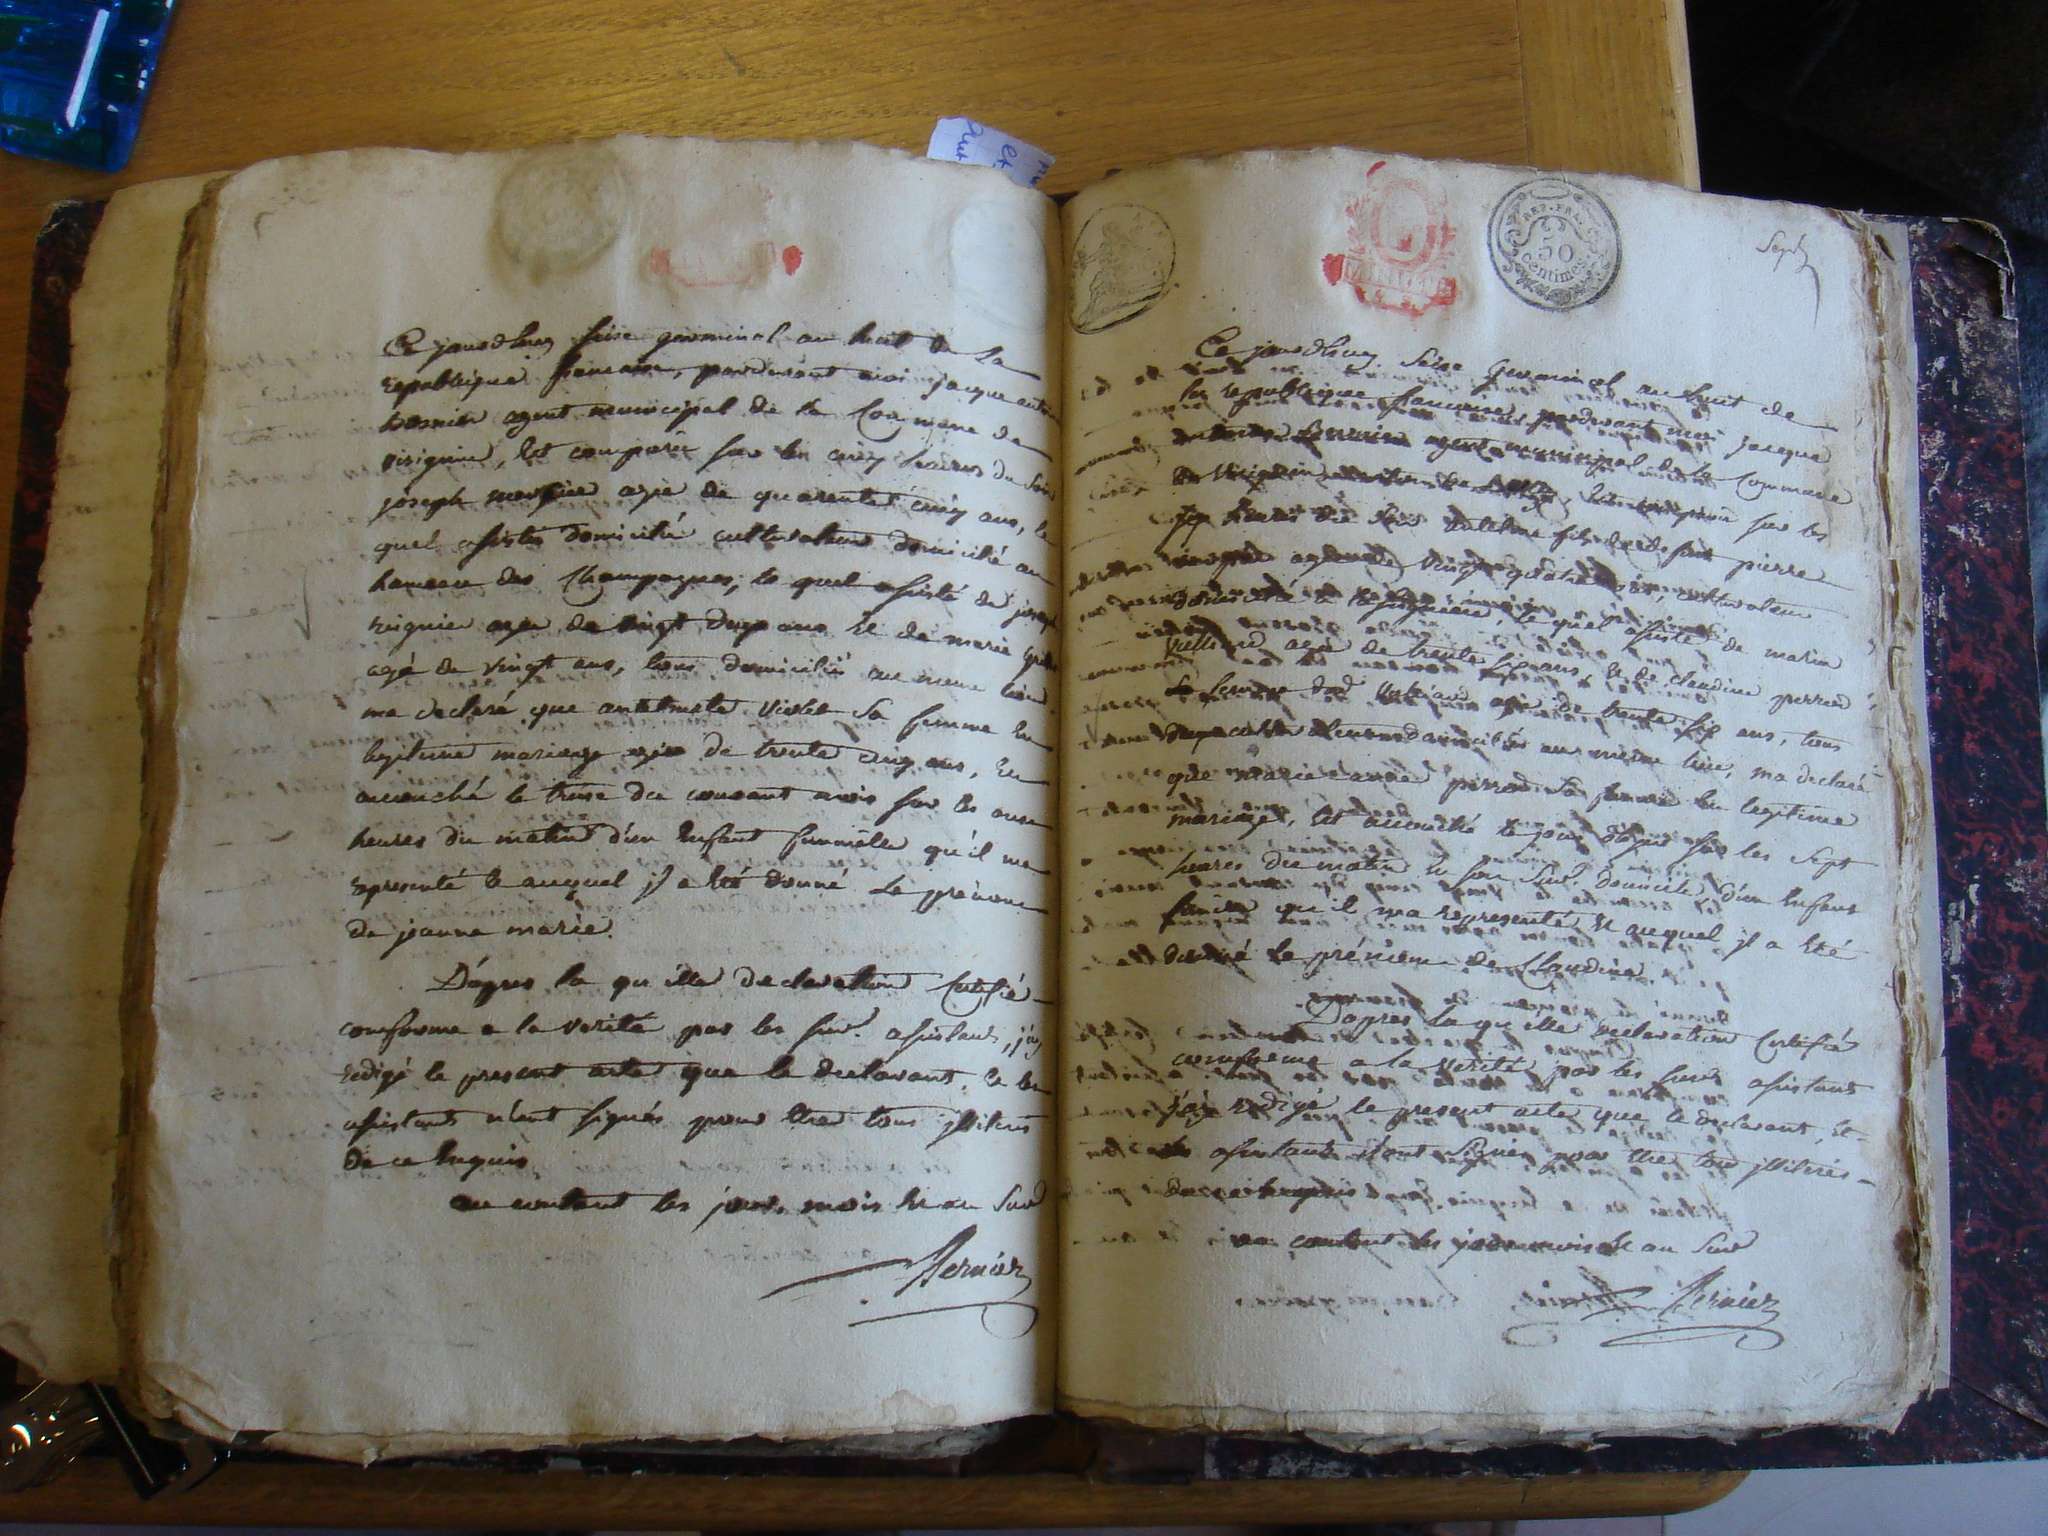 Ce jourdhuy seise germinal an huit de la
republique francaise, pardevant moi jacque antoine
bernier agent municipal de la Commune de
virignin, Est comparu sur les cinq heures du soir
joseph agée de quarente cinq ans, le
quel assisté domicilié cultivateur domicilié au
hameau des Champagnes, le quel assisté de joseph
reignier agée de vingt deux ans Et de marie
agé de vingt ans, tous domiciliés au meme lieu
ma declaré que anthelmette violet Sa femme En
legitime mariage agée de trente cinq ans, Est
accouché le treise du courant mois sur les onse
heures du matin d'un Enfant fummelle qu'il ma
representé Et auquel jl a Eté donné Le prénom
de jeanne marie.
D'apres la qu'elle declaration Certifié
conforme a la verité par les sus. assistants, j'ay
redigé le present acte que le declarant, Et les
assistants n'ont signés pour Etre tous jlliterés
de ce Enquis
au contant les jour, mois Et an Sus
Bernier
REP. FRA.
50
centimes
Sept
Ce jourdhuy Seise Germinal an huit de
la republique francaise, pardevant moi jacque
antoine bernier agent municipal de la Commune
de Virignin sur les
heures du fils de defunt pierre
agé de vingt quatre ans, cultivateur
domicilié a le quel assisté de marin
agé de trente six ans, Et de claudine perrod
sa femme agée de trente six ans, tous
domiciliés au meme lieu, ma declaré
que marie anne perrod Sa femme En legitime
mariage, Est accouché le jour sur les Sept
heures du matin En son Sus. domicile, d'un Enfant
qu'il ma representé Et auquel jl a Eté
donné Le prénom de Claudine.
D'apres la qu'elle declaration Certifié
conforme a la verité par les susd assistants
j'ay redigé le present acte que le declarant, Et
les assistants n'ont Signés pour Etre tous jlliterés
de ce Enquis
au contant les jour mois Et an Sus
Bernier